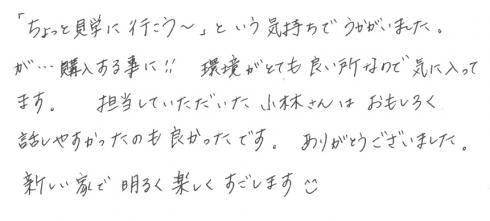 「ちょっと見学に行こう～」という気持ちでうかがいました。
が…購入する事に!! 環境がとても良い所なので気に入って
ます。 担当していただいた小林さんはおもしろく
話しやすかったのも良かったです。 ありがとうございました。
新しい家で明るく楽しくすごします☺